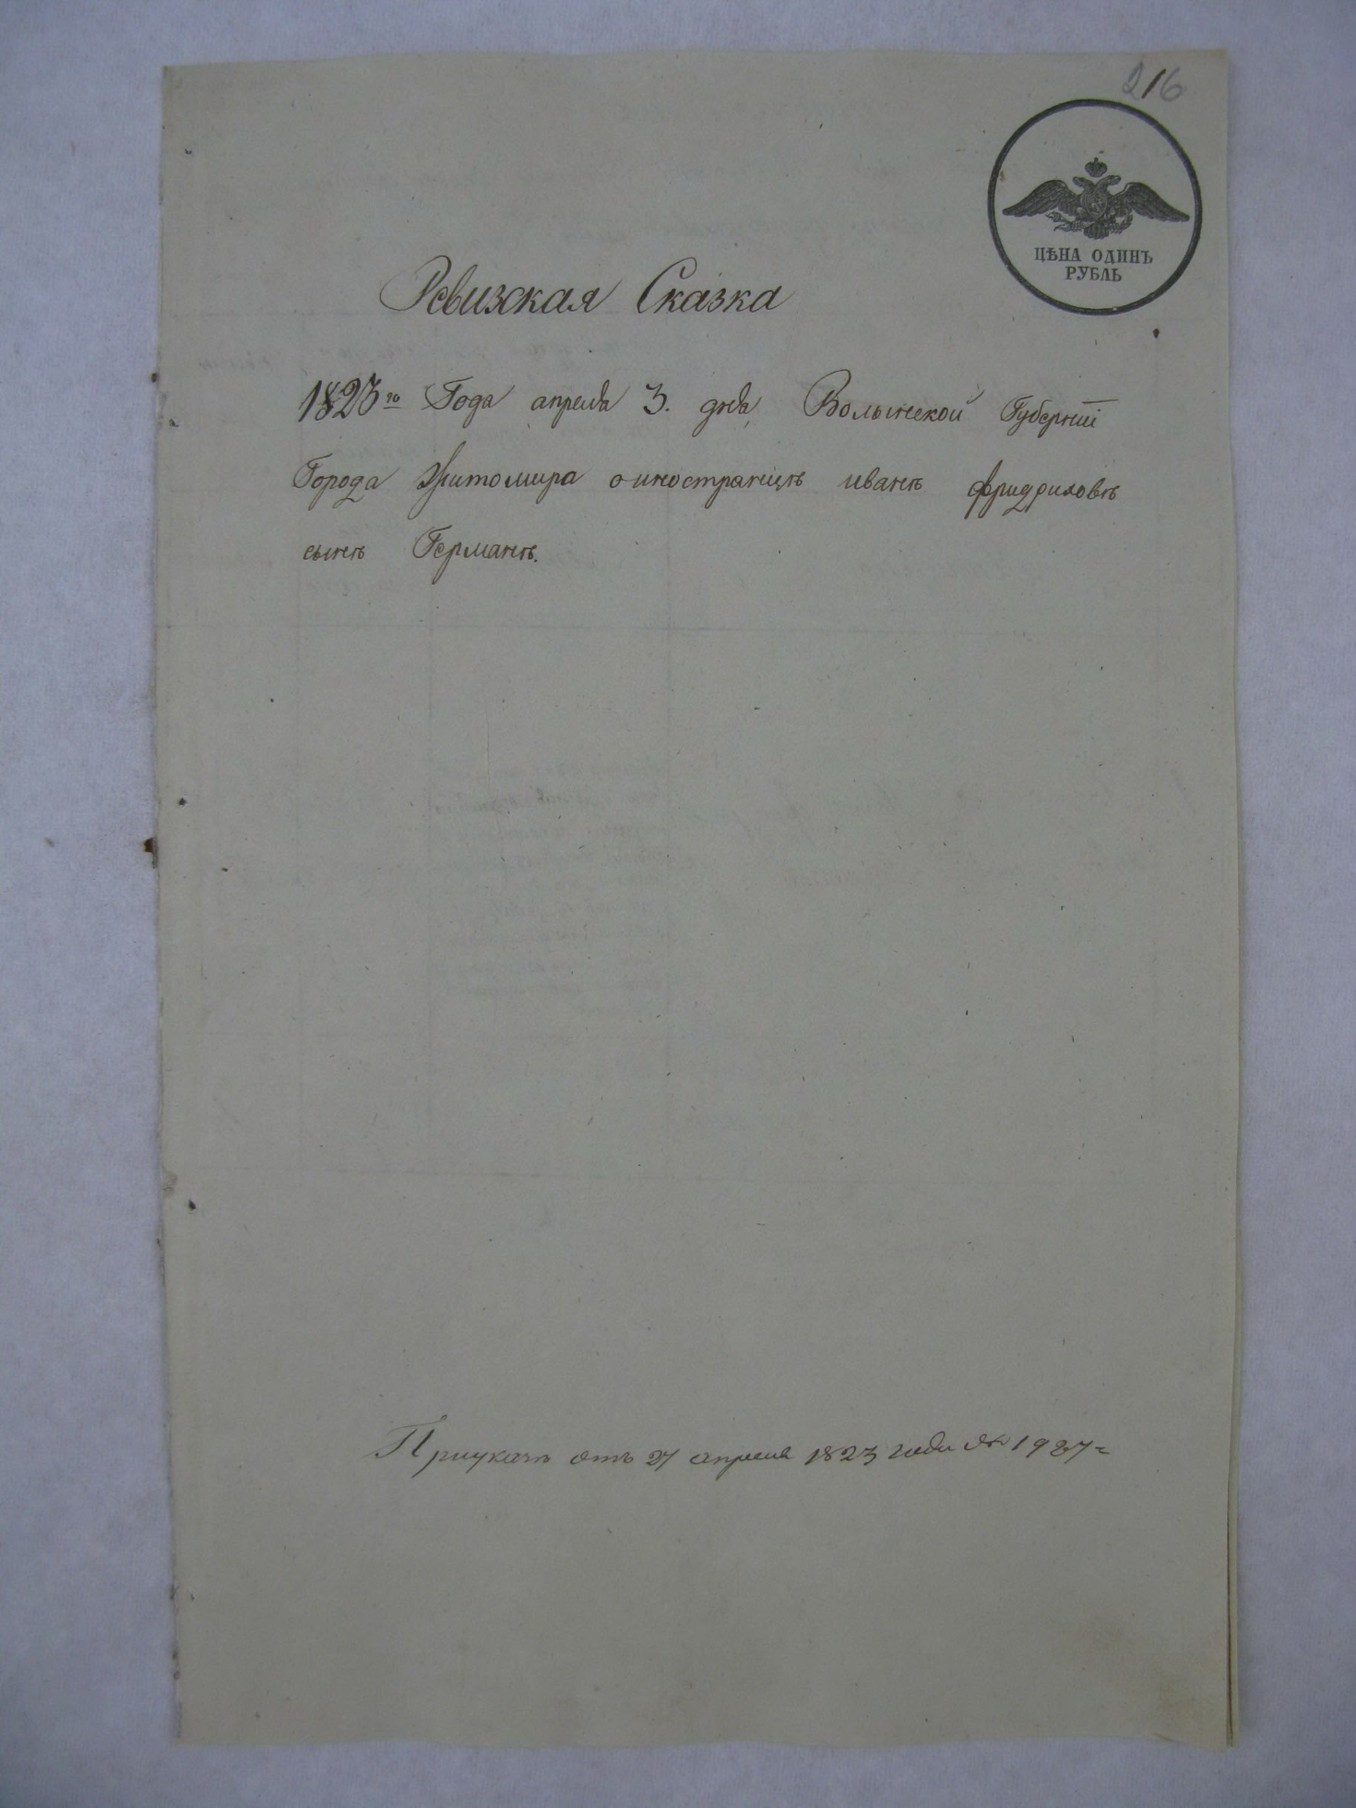 216
ЦѢНА ОДИНЪ
РУБЛЬ
Ревизская Сказка
1823го Года апреля 3. дня, Волынской Губернiи
Города Житомира о иностранцѣ иванѣ фридриховѣ
сынѣ Германѣ.
При указѣ отъ 27 апреля 1823 года № 1987=